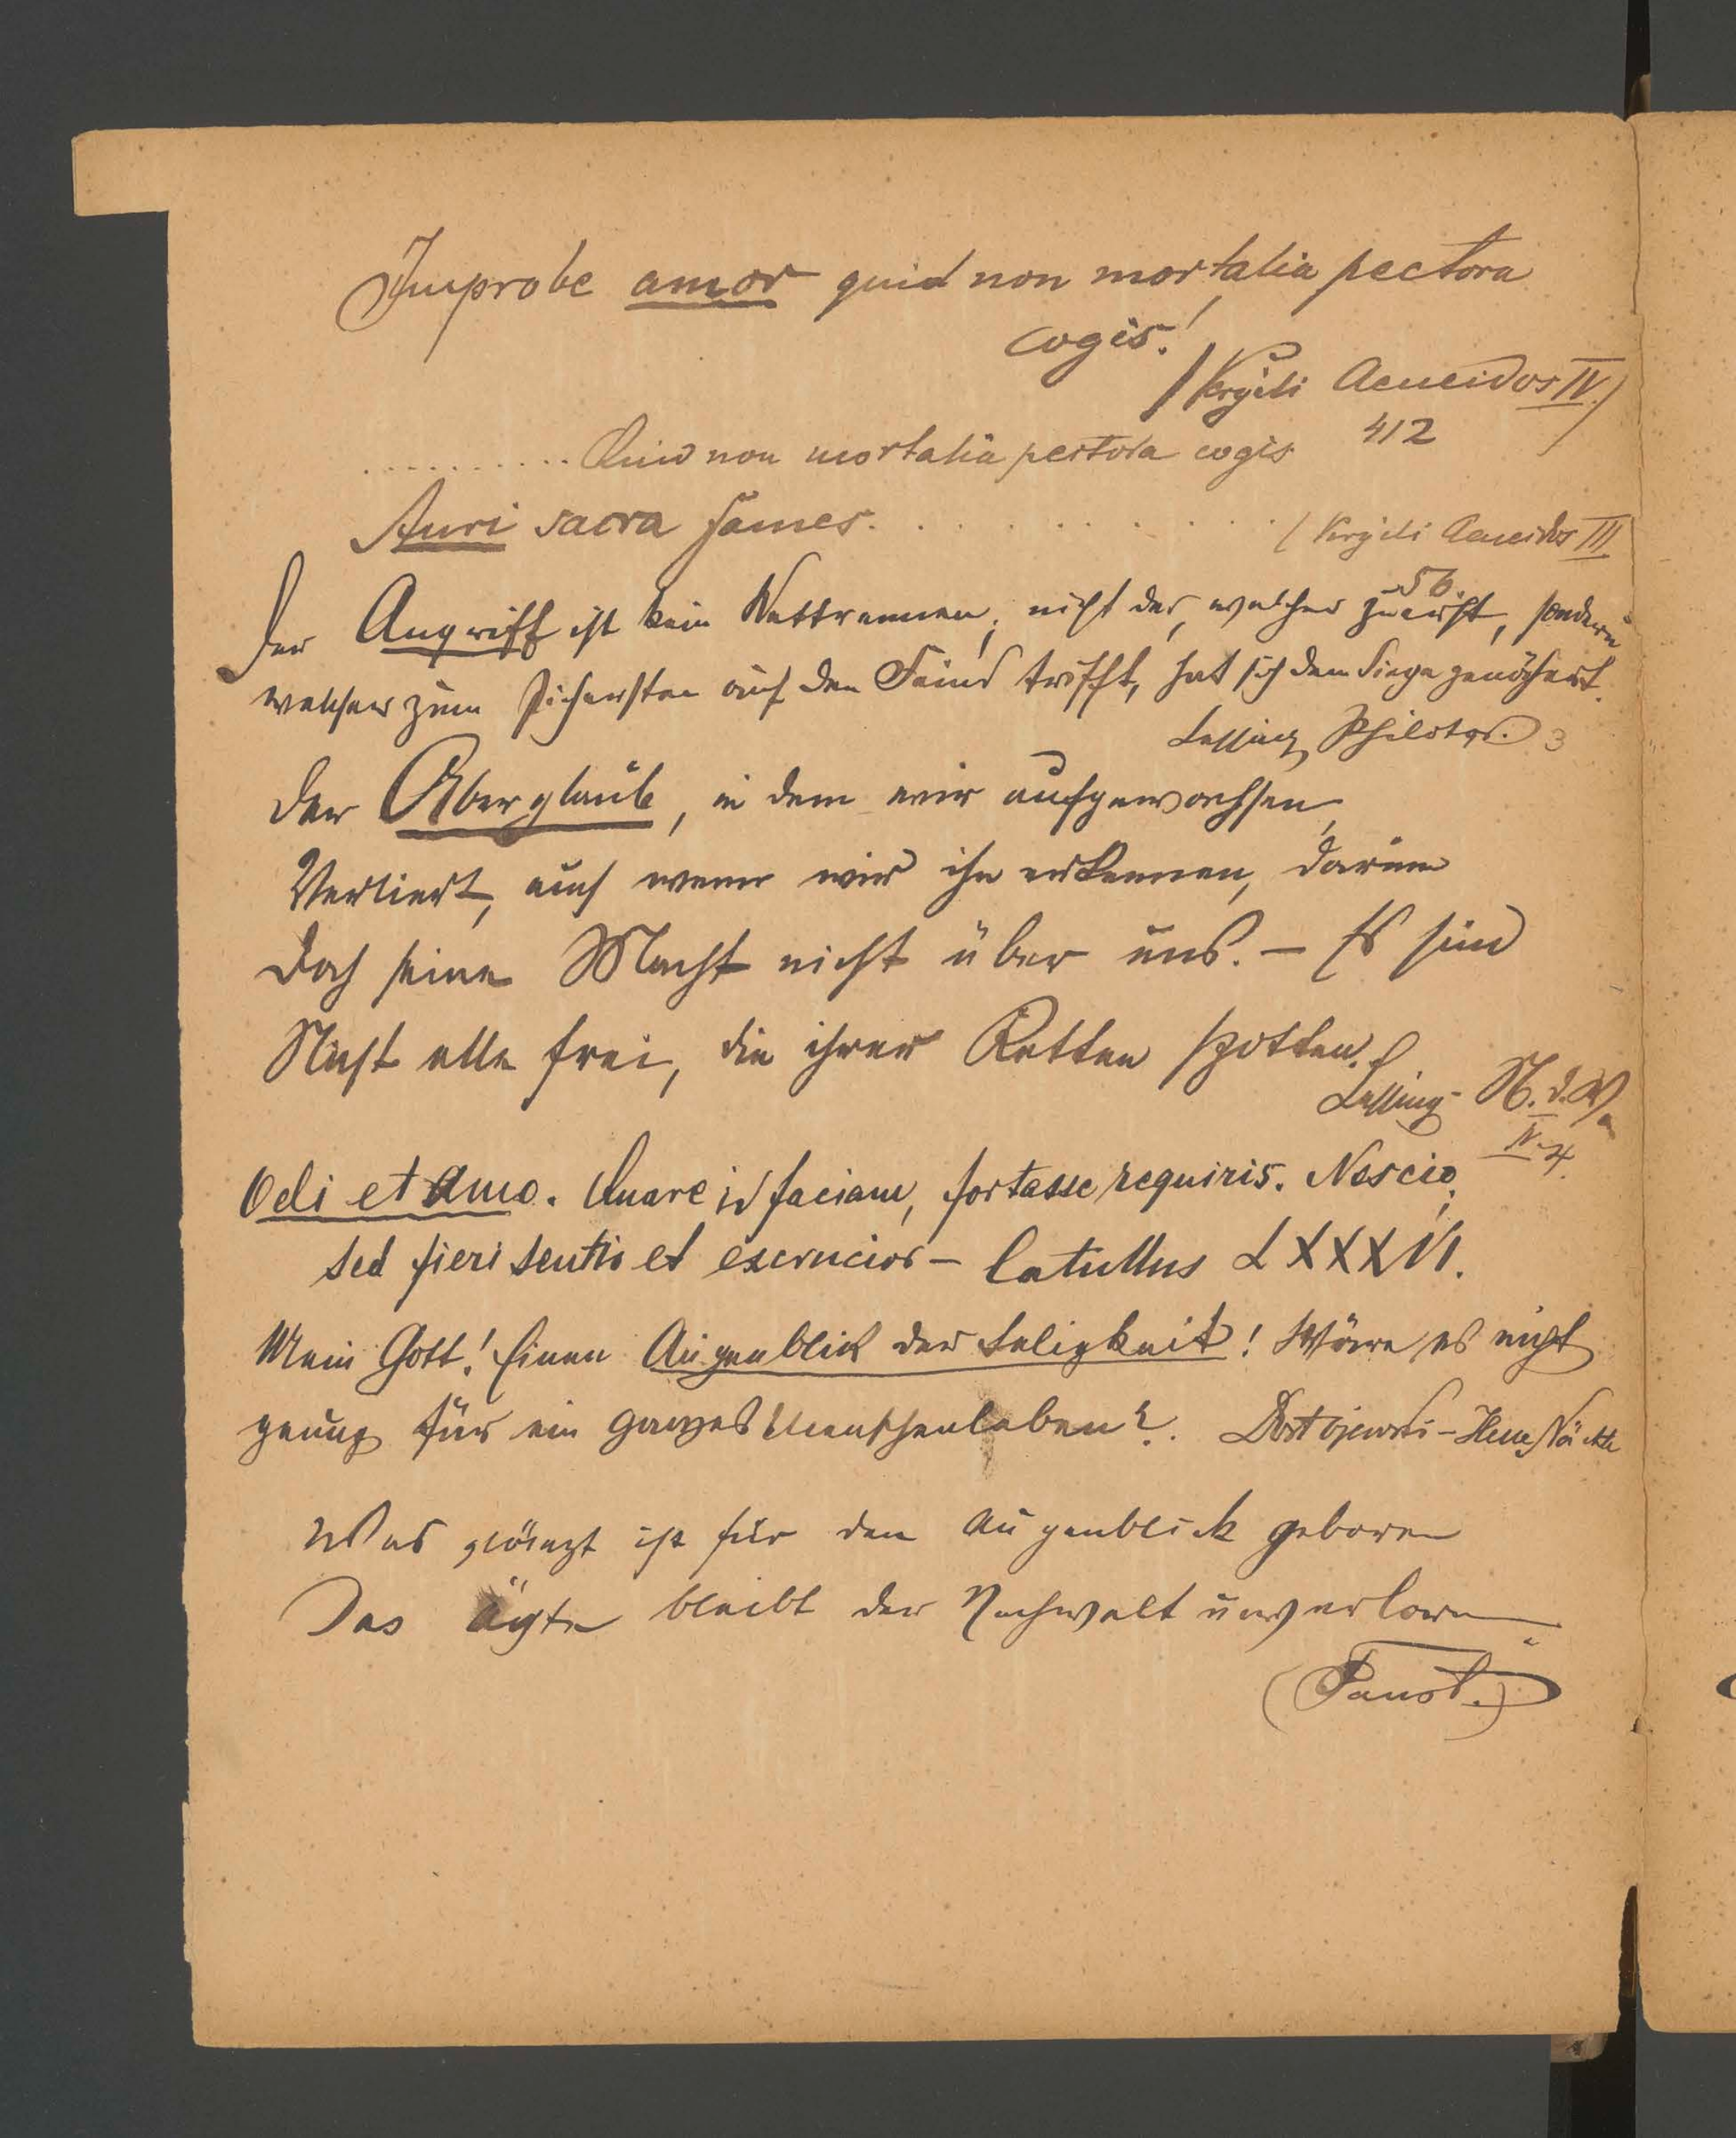 Improbe amor quid non mortalia pectora
cogis!
(Vergili Aeneidos IV.)
412
.......... Quid non mortalia pectora cogis
Auri sacra fames. . . . . . . . . . (Vergili Aeneidos III
56.
Der Angriff ist kein Wettrennen; nicht der, welcher zuerst, sondern
welcher zum sichersten auf den Feind trifft, hat sich dem Siege genähert.
Lessing, Philotas. 3
Der Aberglaub, in dem wir aufgewachsen,
Verliert, auch wenn wir ihn erkennen, darum
Doch seine Macht nicht über uns. – Es sind
Nicht alle frei, die ihrer Ketten spotten.
Lessing - N. d. W.
IV. 4.
Odi et amo. Quare id faciam, fortasse requiris. Nescio,
sed fieri sentio et excrucior – Catullus LXXXVI.
Mein Gott! Einen Augenblick der Seligkeit! Wäre es nicht
genug für ein ganzes Menschenleben?. Dostojewski - Nächte
Was glänzt ist für den Augenblick geboren
Das ächte bleibt der Nachwelt unverloren
(Faust.)